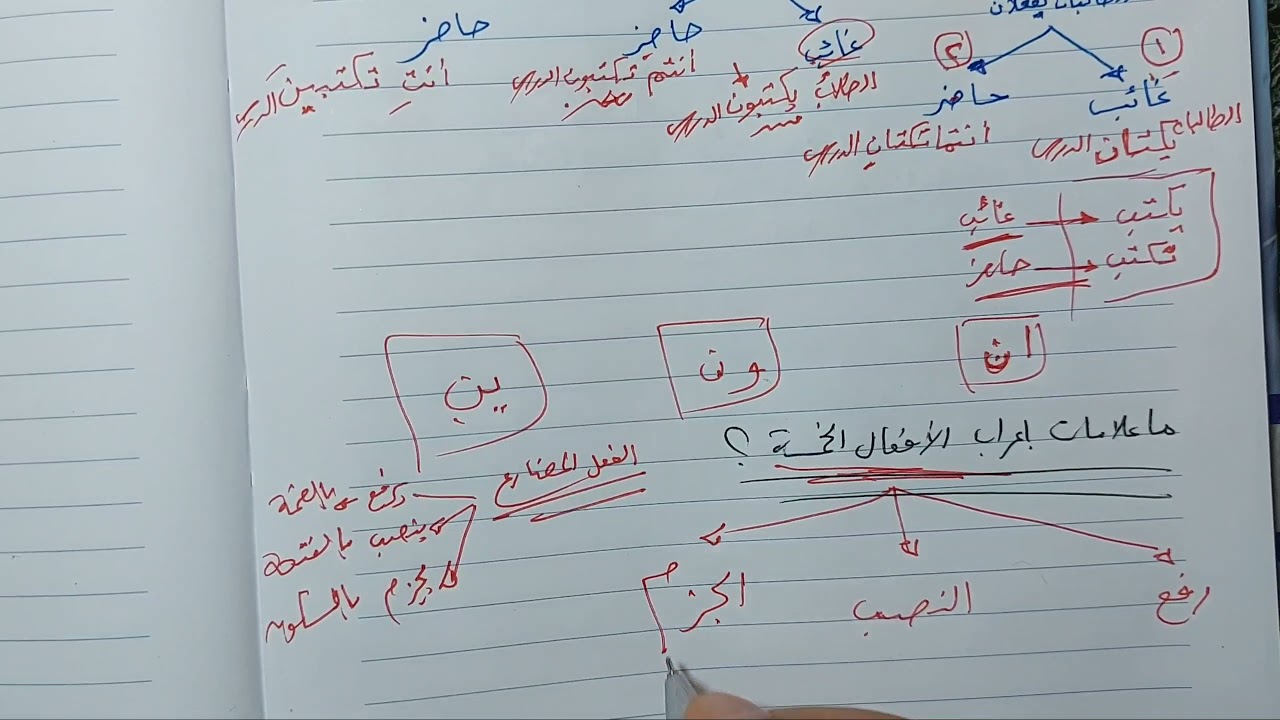 الطالبان يفعلان
١ غائب ٢ حاضر
غائب حاضر حاضر
الطالبان يكتبان الدرس
انتما تكتبان الدرس
الطلاب يكتبون الدرس
انتم تكتبون الدرس
أنتِ تكتبين الدرس
يكتب غائب
تكتب حاضر
ان ون ين
ما علامات إعراب الأفعال الخمسة ؟
رفع النصب الجزم
الفعل المضارع
يرفع بالضمة
ينصب بالفتحة
يجزم بالسكون